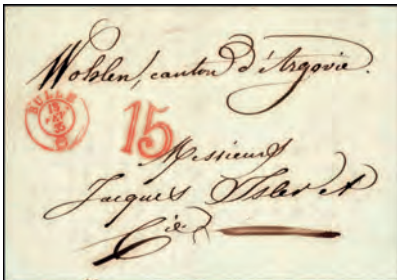 Wohlen, canton d'Argovie.
BULLE
15
Messieurs
Jacques Isler et
Cie